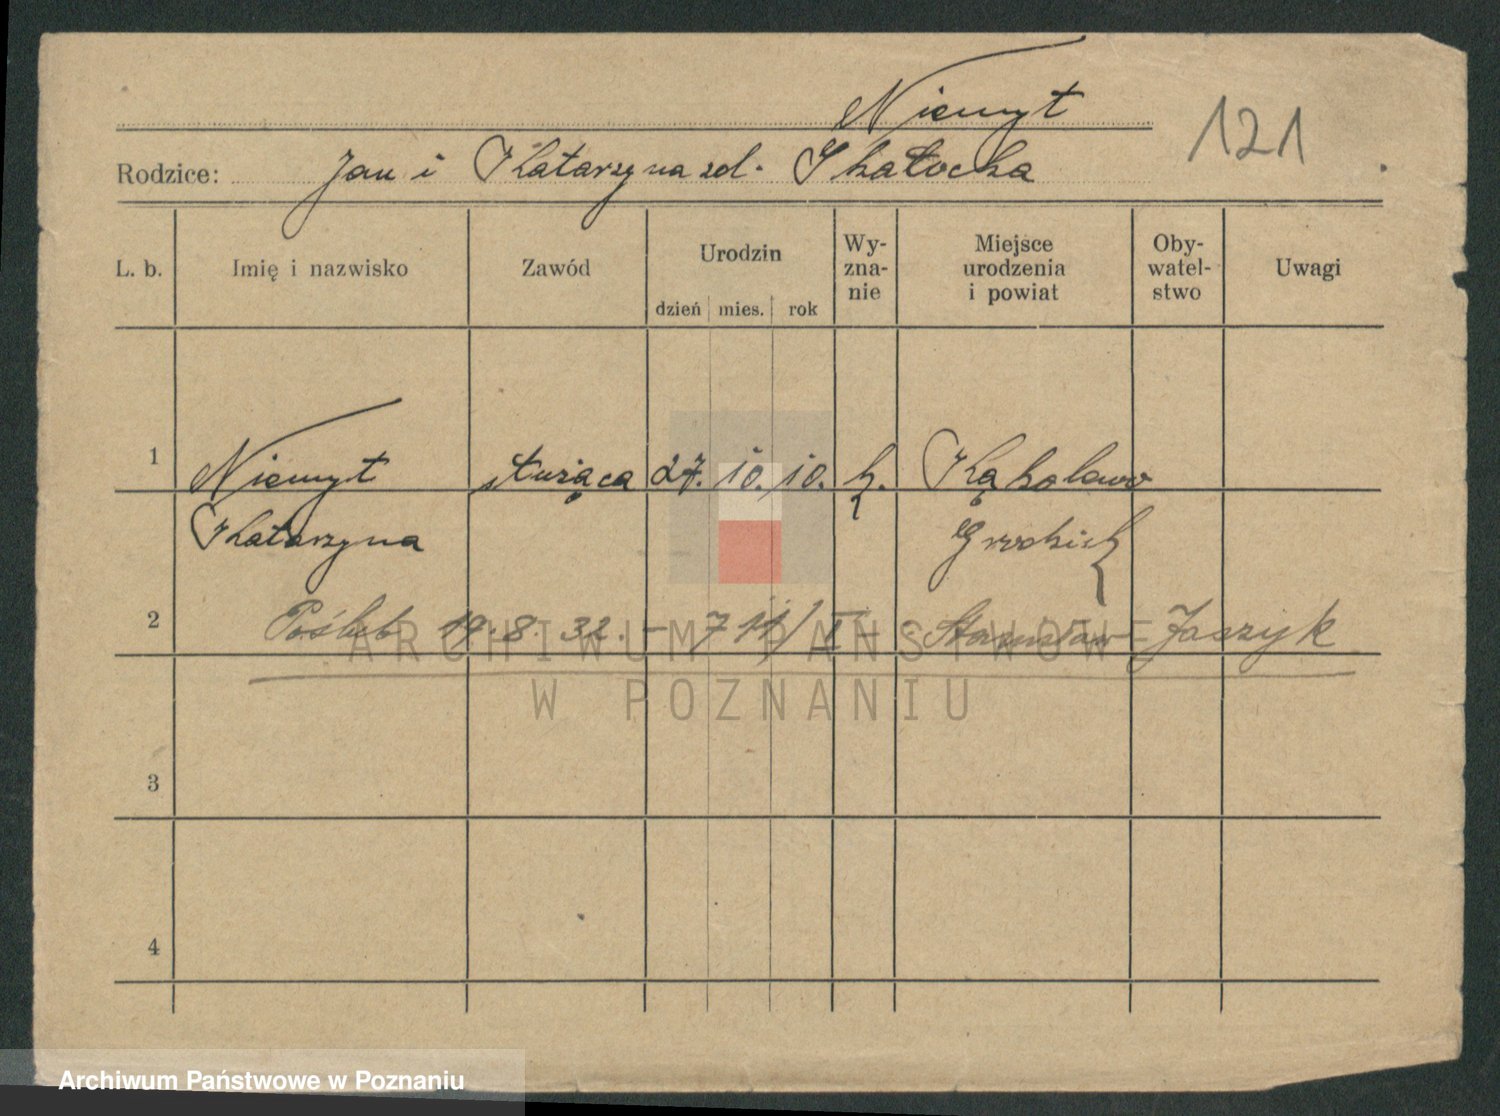 Niemyt
121
Rodzice: Jan i Katarzyna zd. Skałecka
L. b.
Imię i nazwisko
Zawód
Urodzin
dzień
mies.
rok
Wy-
zna-
nie
Miejsce
urodzenia
i powiat
Oby-
watel-
stwo
Uwagi
1
Niemyt służąca 27. 10. 10. k. Kąkolewo
Katarzyna Grodzisk
2
Poślub 19. 8. 32. – 711/I – Stanisław Jaszyk
3
4
ARCHIWUM PAŃSTWOWE
W POZNANIU
Archiwum Państwowe w Poznaniu